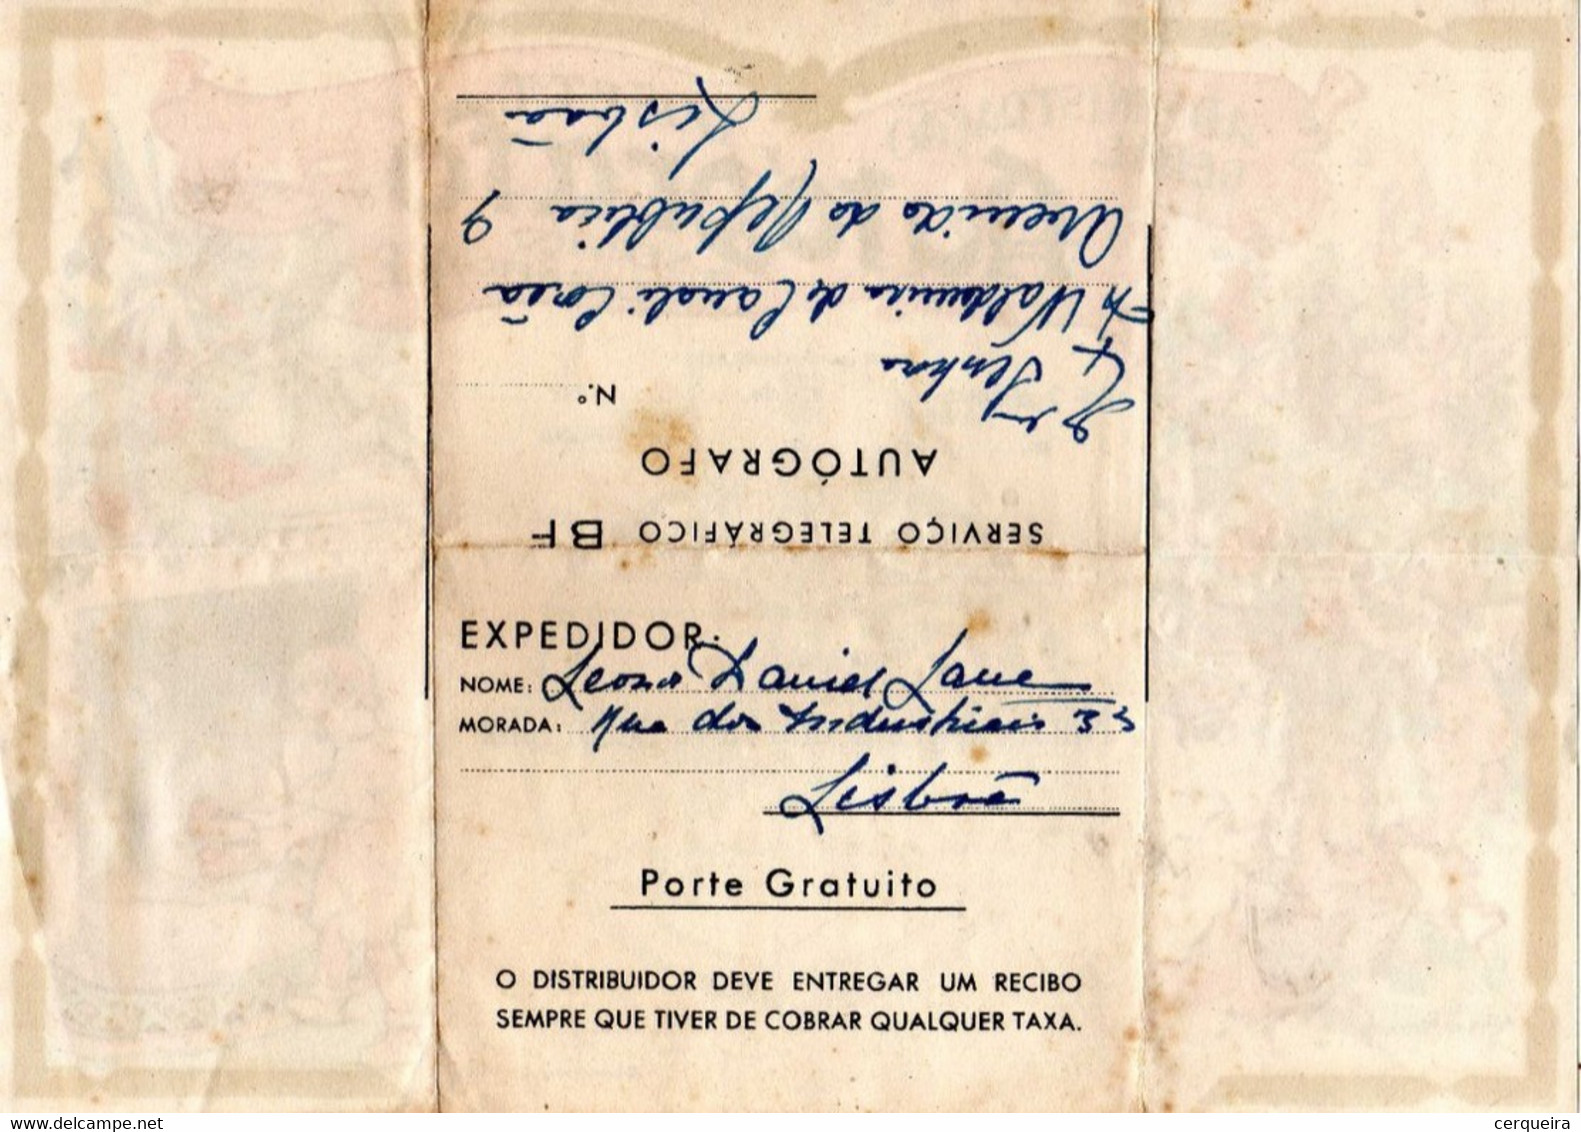 SERVIÇO TELEGRÁFICO BF
AUTÓGRAFO
N.º
Senhora
Waldemira de Canali
Avenida da Republica 9
Lisboa
EXPEDIDOR:
NOME: Daniel
MORADA: Rua dos Industriais 33
Lisboa
Porte Gratuito
O DISTRIBUIDOR DEVE ENTREGAR UM RECIBO
SEMPRE QUE TIVER DE COBRAR QUALQUER TAXA.
www.delcampe.net
cerqueira